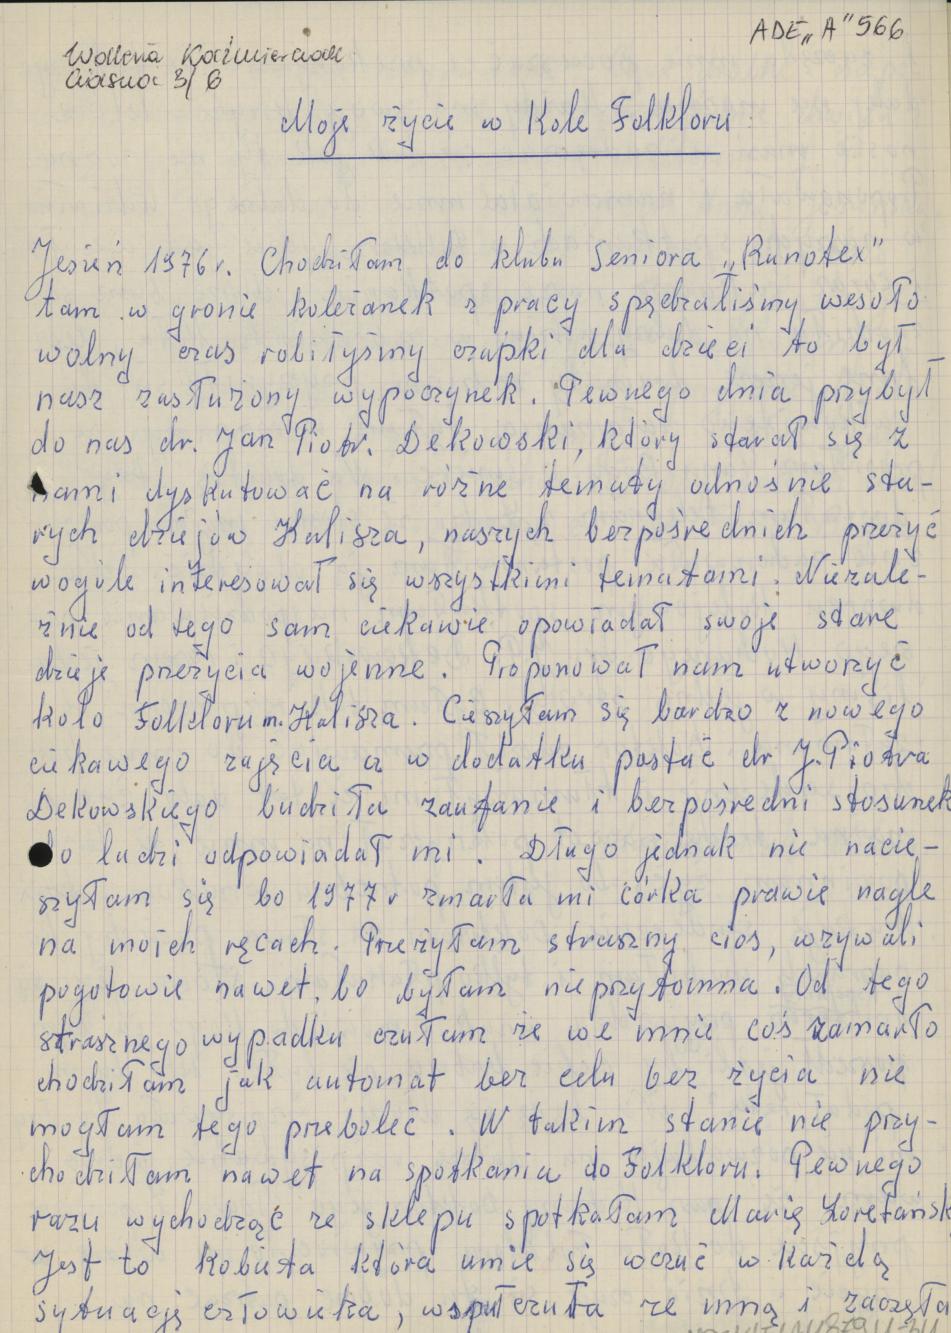 ADE „A" 566
Walleria Kaźmierczak
Ciasna 3/6
Moje życie w Kole Folkloru
Jesień 1976 r. Chodziłam do klubu Seniora „Runotex"
tam w gronie koleżanek z pracy spędzaliśmy wesoło
wolny czas robiłyśmy czapki dla dzieci to był
nasz zasłużony wypoczynek. Pewnego dnia przybył
do nas dr. Jan Piotr. Dekowski, który starał się z
nami dyskutować na różne tematy odnośnie sta-
rych dziejów Kalisza, naszych bezpośrednich przeżyć
wogóle interesował się wszystkimi tematami. Nieżale-
żnie od tego sam ciekawie opowiadał swoje stare
dzieje przeżycia wojenne. Proponował nam utworzyć
koło Folkloru m. Kalisza. Cieszyłam się bardzo z nowego
ciekawego zajęcia a w dodatku postać dr J. Piotra
Dekowskiego budziła zaufanie i bezpośredni stosunek
do ludzi odpowiadał mi. Długo jednak nie nacie-
szyłam się bo 1977 r zmarła mi córka prawie nagle
na moich ręcach. Przeżyłam straszny cios, wzywali
pogotowie nawet, bo byłam nieprzytomna. Od tego
strasznego wypadku czułam że we mnie coś zamarło
chodziłam jak automat bez celu bez życia nie
mogłam tego przeboleć. W takim stanie nie przy-
chodziłam nawet na spotkania do Folkloru. Pewnego
razu wychodząć ze sklepu spotkałam Marię
Jest to kobieta która umie się wczuć w każdą
sytuację człowieka, wspułczuła ze mną i zaczęła